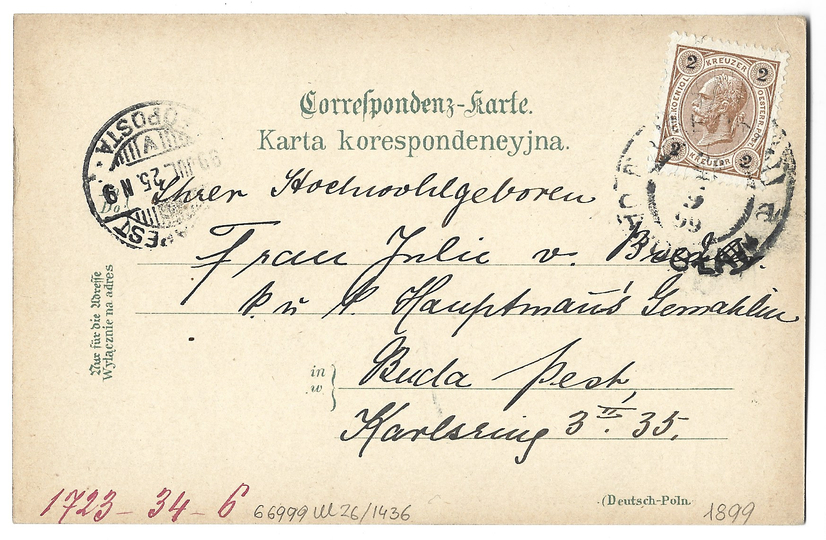 Correspondenz-Karte.
Karta korespondencyjna.
2 KREUZER 2
KAIS. KOENIGL. OESTERR. POST
2 KREUZER 2
99 JUL. 25. N 9
Ihrer Hochwohlgeboren
Frau Julie v.
k u k Hauptmann's Gemahlin
in
w
Buda Pest,
Karlsring 3 II. 35.
Nur für die Adresse
Wyłącznie na adres
1723 - 34 - 6
66999
/1436
(Deutsch-Poln.
1899